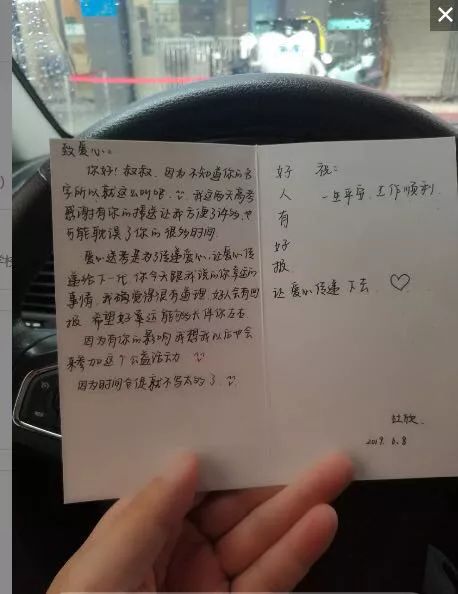 致爱心:
你好！叔叔，因为不知道你的名
字所以就这么叫吧。我这两天高考
感谢有你的接送让我方便了许多,也
可能耽误了你的很多时间.
爱心送考是为了传递爱心,让爱心传
递给下一代,你今天跟我说的你幸运的
事情,我确实觉得很有道理,好人会有回
报,希望好幸运能够伴你左右.
因为有你的影响,我想我以后也会
来参加这个公益活动
因为时间仓促就不写太的了.
好人有好报
祝:
一生平安,工作顺利.
让爱心传递下去.♡
2019.6.8